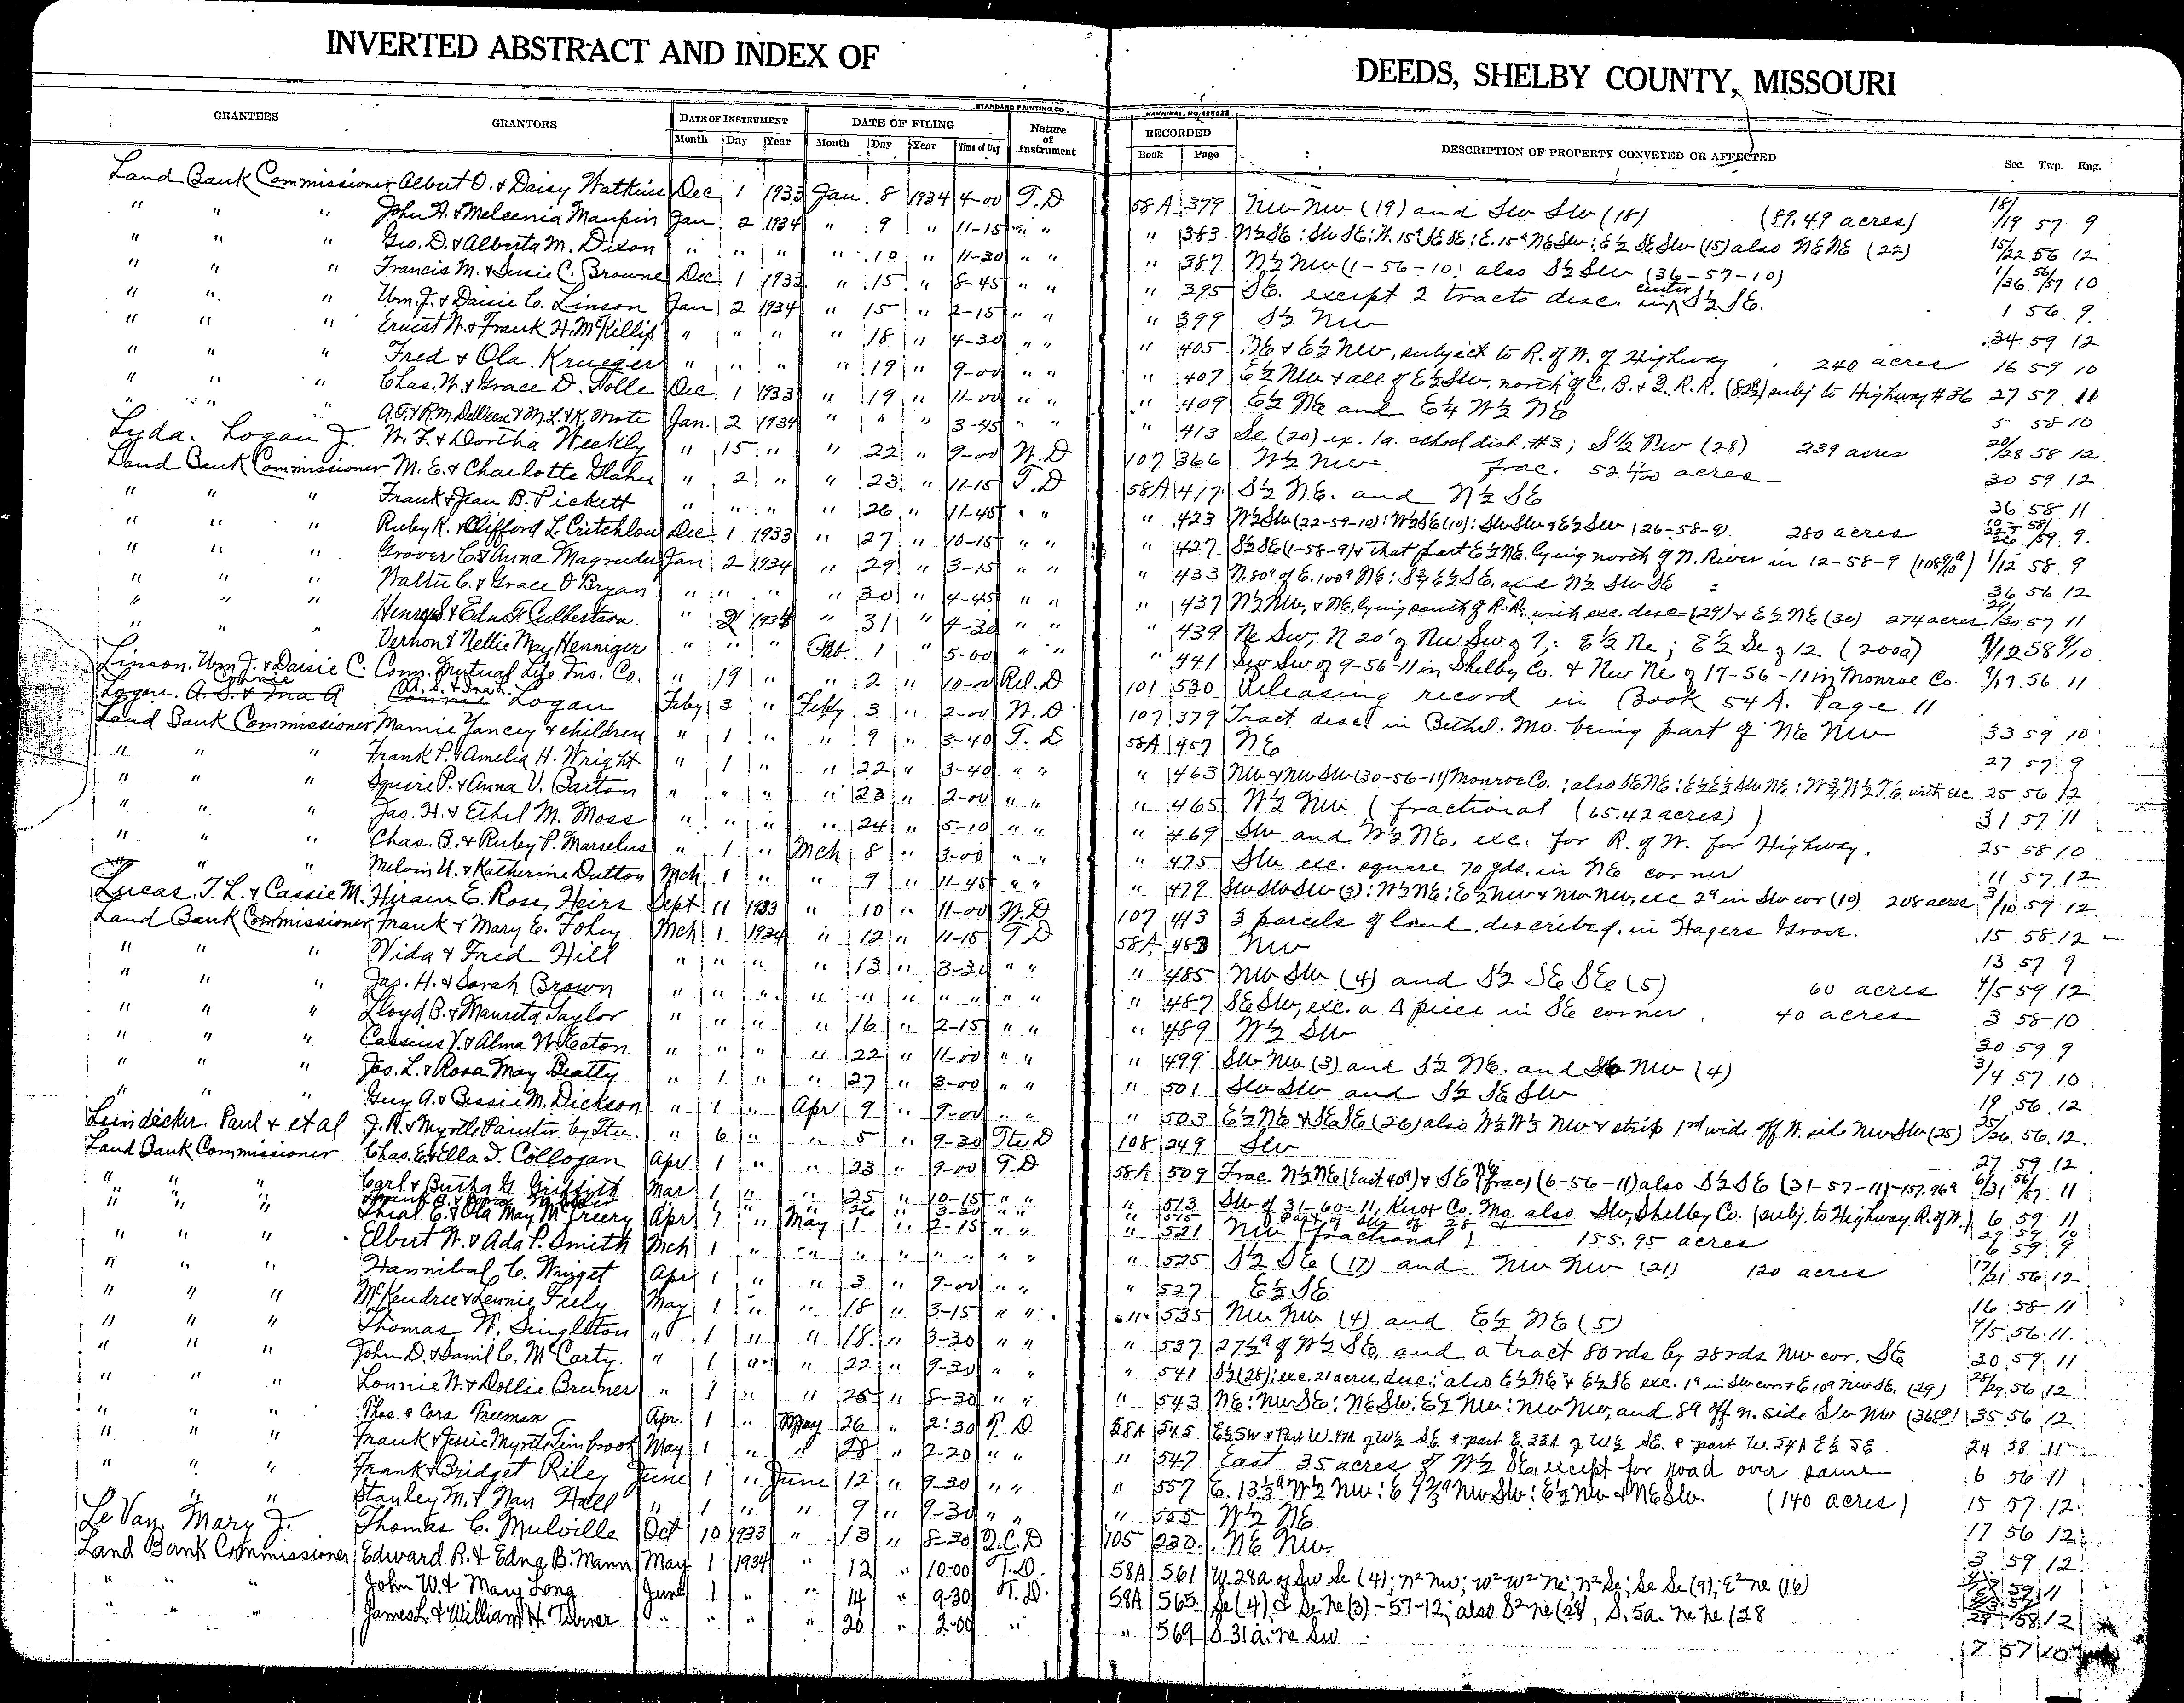 INVERTED ABSTRACT AND INDEX OF DEEDS, SHELBY COUNTY, MISSOURI
STANDARD PRINTING CO.
GRANTEES GRANTORS DATE OF INSTRUMENT DATE OF FILING Nature of Instrument RECORDED DESCRIPTION OF PROPERTY CONVEYED OR AFFECTED Sec. Twp. Rng.
Month Day Year Month Day Year Time of Day Book Page
Land Bank Commissioner Albert O. & Daisy Watkins Dec 1 1933 Jan 8 1934 4-00 T.D 58A 379 NW NW (19) and SW SW (18) (89.49 acres) 18/19 57 9
" " " John H. & Meleenia Maupin Jan 2 1934 " 9 " 11-15 " " " 383 N½ SE: SW SE: N. 15ª SE SE: E. 15ª NE SW: E½ SE SW (15) also NE NE (22) 15/22 56 12
" " " Geo. D. & Alberta M. Dixon " " " " 10 " 11-30 " " " 387 N½ NW (1-56-10) also S½ SW (36-57-10) 1/36 56/57 10
" " " Francis M. & Susie C. Browne Dec 1 1933 " 15 " 8-45 " " " 395 SE. except 2 tracts desc. in center S½ SE. 1 56 9
" " " Wm. J. & Daisie C. Linson Jan 2 1934 " 15 " 2-15 " " " 399 S½ NW 34 59 12
" " " Ernest W. & Frank H. McKillip " " " " 18 " 4-30 " " " 405 NE & E½ NW, subject to R. of W. of Highway 240 acres 16 59 10
" " " Fred & Ola Krueger " " " " 19 " 9-00 " " " 407 E½ NW & all of E½ SW, north of C. B. & Q. R.R. subj to Highway #36 27 57 11
" " " Chas. W. & Grace D. Tolle Dec 1 1933 " 19 " 11-00 " " " 409 E½ NE and E¼ W½ NE 5 58 10
" " " Jan. 2 1934 " " " 3-45 " 413 Se (20) ex. 1a. school dist. #3; S½ NW (28) 239 acres 20/28 58 12
Lyda, Logan J. W. F. & Dortha Weekly " 15 " " 22 " 9-00 W.D 107 366 W½ NW frac. 52 17/100 acres 30 59 12
Land Bank Commissioner M. E. & Charlotte " 2 " " 23 " 11-15 T.D 58A 417 S½ NE. and N½ SE 36 58 11
" " " Frank & Jean B. Pickett " " " " 26 " 11-45 " " " 423 W½ SW (22-59-10): W½ SE (10): SW SW & E½ SW (26-58-9) 280 acres
" " " Ruby K. & Clifford L. Critchlow Dec 1 1933 " 27 " 10-15 " " " 427 S½ SE (1-58-9) & that part E½ NE. lying north of N. River in 12-58-9 1/12 58 9
" " " Grover C. & Anna Magruder Jan 2 1934 " 29 " 3-15 " " " 433 N. 80ª of E. 100ª NE: E½ SE, and N½ SW SE 36 56 12
" " " Walter C. & Grace O Bryan " " " " 30 " 4-45 " " " 437 N½ NW, & NE, lying south of R.R. with exc. desc (29) & E½ NE (30) 274 acres 29/30 57 11
" " " Henry S. & Edna F. Culbertson " 2 1934 " 31 " 4-30 " " " 439 Ne Sw, N 20' of Nw Sw of 7; E½ Ne; E½ Se of 12 (200a)
" " " Vernon & Nellie May Henniger " " " Feb. 1 " 5-00 " " " 441 Sw Sw of 9-56-11 in Shelby Co. & New Ne of 17-56-11 in Monroe Co. 9/17 56 11
Linson, Wm J. & Daisie C. Conn. Mutual Life Ins. Co. " 19 " " 2 " 10-00 Rel.D 101 530 Releasing record in Book 54 A. Page 11
Logan, Connie Logan Feby 3 " Feby 3 " 2-00 W.D 107 379 Tract desc. in Bethel. Mo. being part of NE NW 33 59 10
Land Bank Commissioner Mamie Yancey & children " 1 " " 9 " 3-40 T.D 58A 457 NE 27 57 9
" " " Frank P. & Amelia H. Wright " 1 " " 22 " 3-40 " " " 463 NW & NW SW (30-56-11) Monroe Co.; also SE NE: E½ E½ SW NE: with exc. 25 56 12
" " " Squire P. & Anna V. Barton " " " " 23 " 2-00 " " " 465 W½ NW (fractional (65.42 acres)) 31 57 11
" " " Jas. H. & Ethel M. Moss " " " " 24 " 5-10 " " " 469 SW and W½ NE, exc. for R. of W. for Highway. 25 58 10
" " " Chas. B. & Ruby P. Marselus " 1 " Mch 8 " 3-00 " " " 475 SW exc. square 70 yds. in NE corner 11 57 12
" " " Melvin U. & Katherine Dutton Mch 1 " " 9 " 11-45 " " " 479 SW SW SW (3): W½ NE: E½ NW & NW NW, exc 2ª in SW cor (10) 208 acres 3/10 59 12
Lucas, T. L. & Cassie M. Hiram E. Rose, Heirs Sept 11 1933 " 10 " 11-00 W.D 107 413 3 parcels of land described in Hagers Grove. 15 58 12
Land Bank Commissioner Frank & Mary E. Fohey Mch 1 1934 " 12 " 11-15 T.D 58A 483 NW 13 57 9
" " " Vida & Fred Hill " " " " 13 " 3-30 " " " 485 NW SW (4) and S½ SE SE (5) 60 acres 4/5 59 12
" " " Jas. H. & Sarah Brown " " " " " " " " " " 487 SE SW, exc. a Δ piece in SE corner. 40 acres 3 58 10
" " " Lloyd B. & Maurita Taylor " " " " 16 " 2-15 " " " 489 W½ SW 30 59 9
" " " Cassius Y. & Alma W. Eaton " " " " 22 " 11-00 " " " 499 SW NW (3) and S½ NE. and SE NW (4) 3/4 57 10
" " " Jas. L. & Rosa May Beatty " 1 " " 27 " 3-00 " " " 501 SW SW and S½ SE SW 19 56 12
" " " Guy A. & Bessie M. Dickson " 1 " Apr 9 " 9-00 " " " 503 E½ NE & SE SE (26) also W½ W½ NW & strip 1rd wide off W. side NW SW (25) 25/26 56 12
Leindecker, Paul & et al J. R. & Myrtle Painter by Stee. " 6 " " 5 " 9-30 Tte D 108 249 SW 27 59 12
Land Bank Commissioner Chas. E. & Ella T. Collogan Apr 1 " " 23 " 9-00 T.D 58A 509 Frac. W½ NE (East 40ª) & SE NE (frac) (6-56-11) also S½ SE (31-57-11)-157.96ª 6/31 56/57 11
" " " Carl & Butha G. Griffith Mar 1 " " 25 " 10-15 " " " 513 SW of 31-60-11, Knox Co. Mo. also SW, Shelby Co. (subj. to Highway R. of W.) 6 59 11
" " " Thial E. & Ola May McCreery Apr 1 " May 1 " 2-15 " " " 521 NW (fractional) 155.95 acres 6 59 9
" " " Elbert W. & Ada P. Smith Mch 1 " " " " " " " " 525 S½ SE (17) and NW NW (21) 120 acres 17/21 56 12
" " " Hannibal C. Wright Apr 1 " " 3 " 9-00 " " " 527 E½ SE 16 58 11
" " " McKendree & Lennie Feely May 1 " " 18 " 3-15 " " " 535 NW NW (4) and E½ NE (5) 4/5 56 11
" " " Thomas W. Singleton " 1 " " 18 " 3-30 " " " 537 27½ª of W½ SE, and a tract 80rds by 28rds NW cor. SE 30 59 11
" " " John D. & Danil C. McCarty " 1 " " 22 " 9-30 " " " 541 S½ (28); exc. 21 acres desc.; also E½ NE & E½ SE exc. 1ª in SW cor & E 10ª NW SE. (29) 28/29 56 12
" " " Lonnie W. & Dollie Bruner " 1 " " 25 " 8-30 " " " 543 NE: NW SE: NE SW: E½ NW: NW NW, and 8ª off n. side SW NW 35 56 12
" " " Thos. & Cora Freeman Apr. 1 " May 26 " 2:30 T.D. 58A 545 E½ SW & Part W. 47A of W½ SE & part E. 33A of W½ SE. & part W. 54A E½ SE 24 58 11
" " " Frank & Jessie Myrtle Timbrook May 1 " " 28 " 2-20 " " " 547 East 35 acres of W½ SE, except for road over same 6 56 11
" " " Frank & Bridget Riley June 1 " June 12 " 9-30 " " " 557 E. 13⅓ª W½ NW: E NW SW: E½ NW & NE SW. (140 acres) 15 57 12
" " " Stanley M. & Nan Hall " 1 " " 9 " 9-30 " " " 555 W½ NE 17 56 12
Le Van, Mary J. Thomas C. Mulville Oct 10 1933 " 13 " 8-30 Q.C.D 105 230 NE NW. 3 59 12
Land Bank Commissioner Edward R. & Edna B. Mann May 1 1934 " 12 " 10-00 T.D. 58A 561 W. 28a of Sw Se (4); n² nw; w² w² ne; n² Se; Se Se (9); E² ne (16)
" " " John W. & Mary Long June 1 " " 14 " 9-30 T.D. 58A 565 Se (4) & Se Ne (3)-57-12; also S² ne (28), S. 5a. ne ne (28
" " " James L. & William H. Turner " " " " 20 " 2-00 " " 569 S 31a. ne Sw 7 57 10